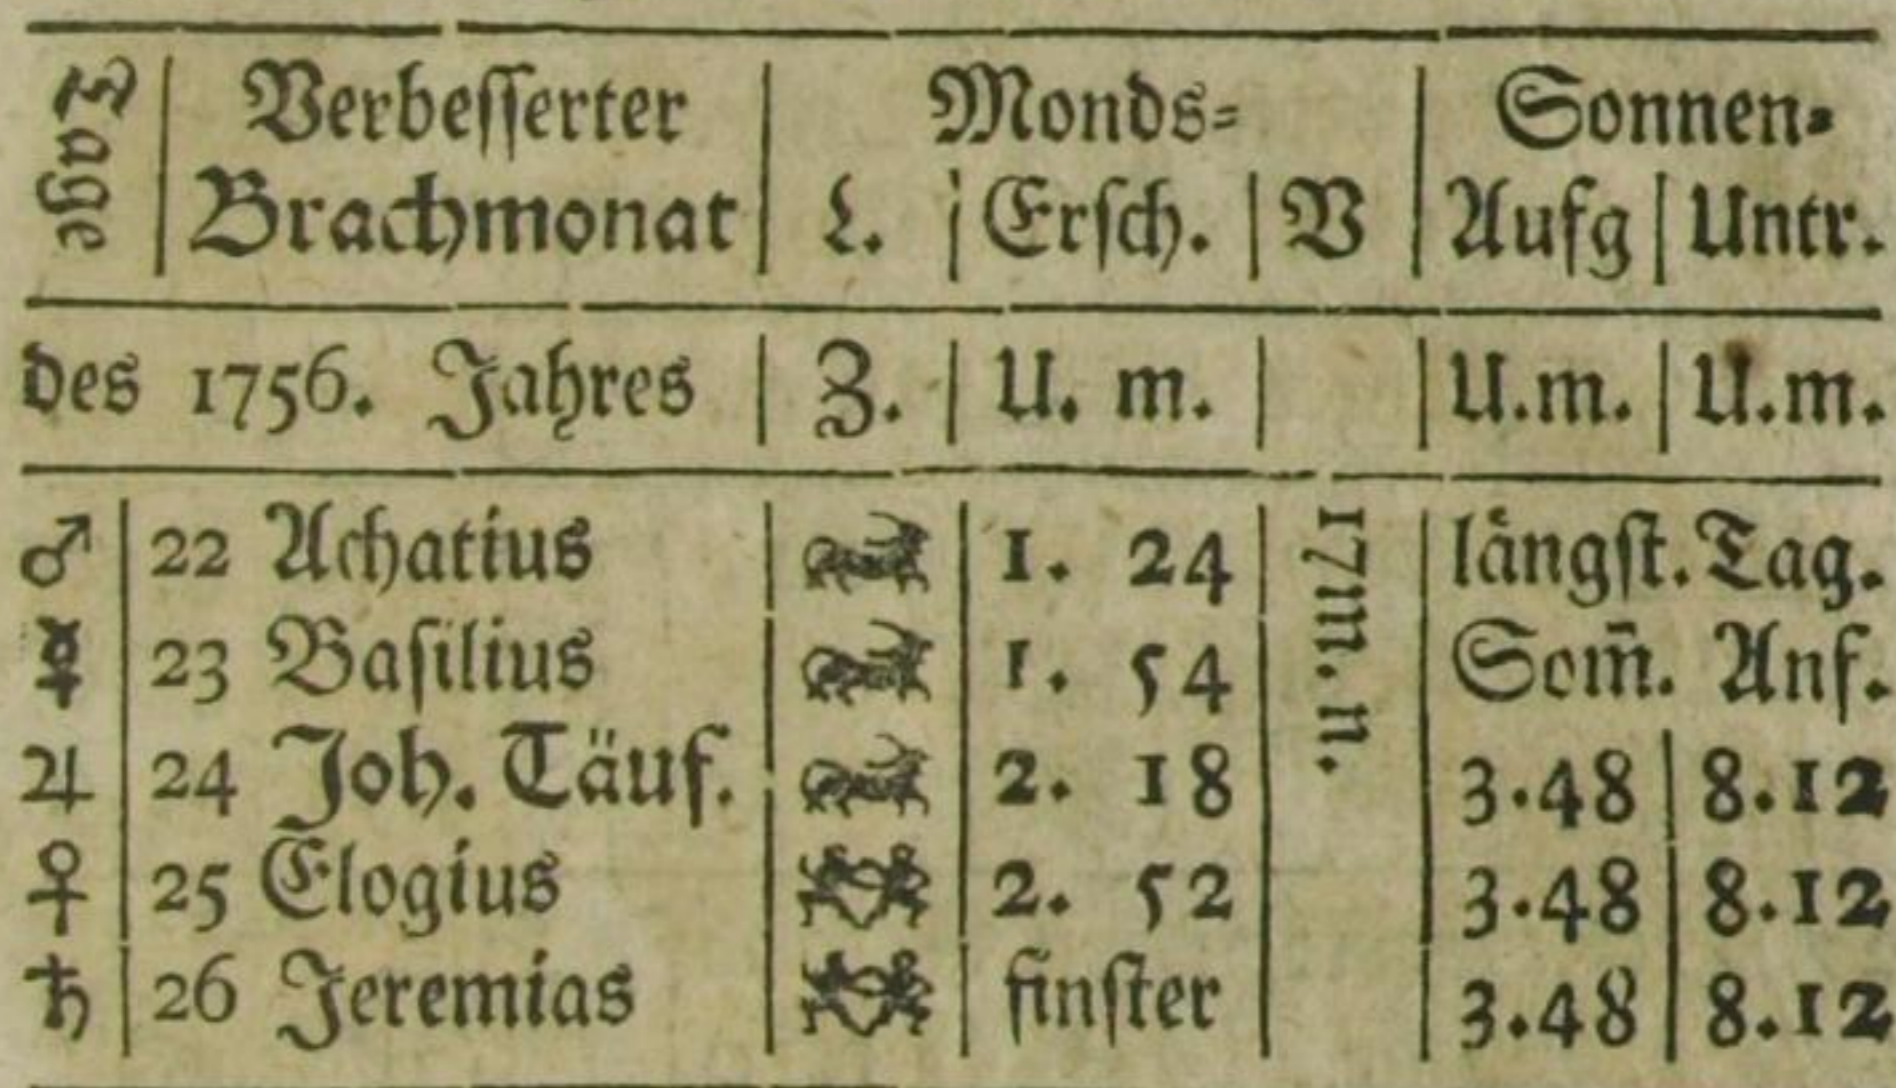 Tage | Verbeſſerter Brachmonat | Monds⸗ | Sonnen⸗
L. | Erſch. | V | Aufg | Untr.
des 1756. Jahres | Z. | U. m. | | U.m. | U.m.
♂ | 22 Achatius | ♉ | 1. 24 | 17 m. n. | laͤngſt. Tag.
☿ | 23 Baſilius | ♉ | 1. 54 | Som̄. Anf.
♃ | 24 Joh. Täuf. | ♉ | 2. 18 | 3.48 | 8.12
♀ | 25 Elogius | ♊ | 2. 52 | 3.48 | 8.12
♄ | 26 Jeremias | ♊ | finſter | 3.48 | 8.12